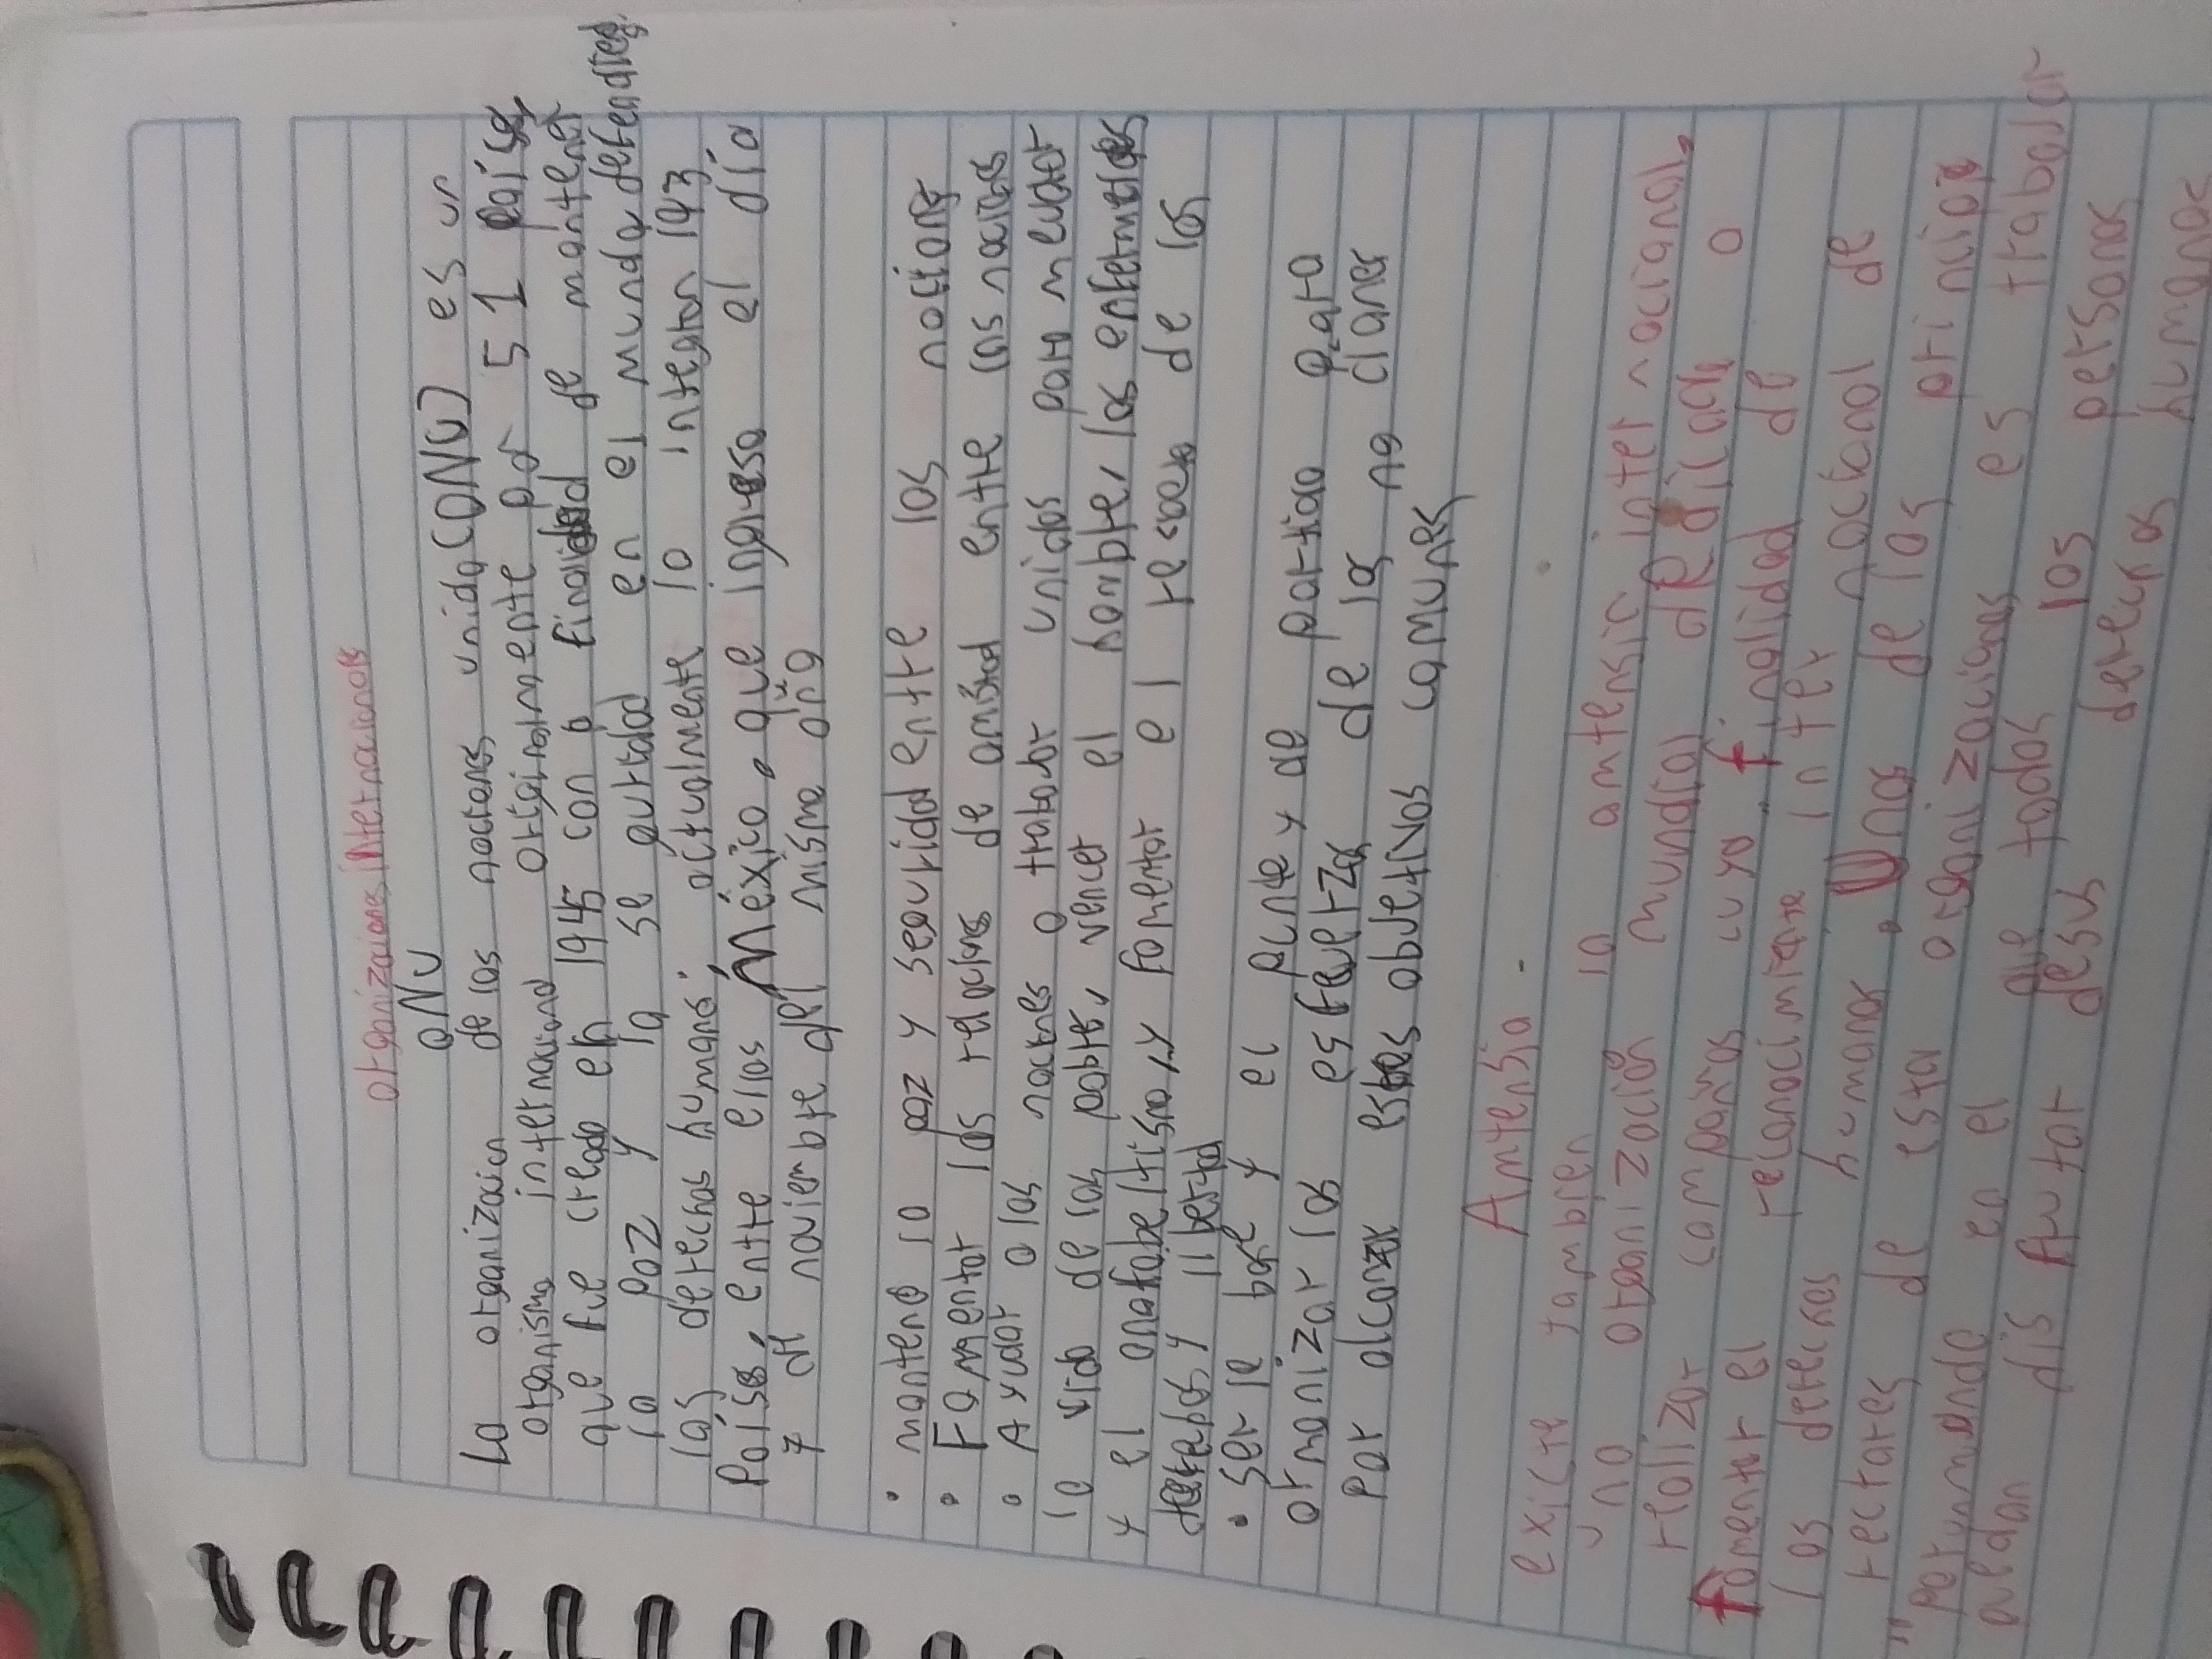 organizaciones internacionals
ONU
La organizacion de las naciones unida (ONU) es un
organismo internacional originalmente por 51 paises
que fue creado en 1945 con la finalidad de mantener
la paz y la se guridad en el mundo defender
las derechos humano. actualmente lo integran 193
Paises, entre ellos México, que ingreso el día
7 de noviembre del mismo año
• mantener la paz y seguridad entre los nations
• Fomentar las relaciones de amistad entre las naciones
• Ayudar a las naciones a trabajar unidos para mejorar
la vida de los pobres, vencer el hambre, las enfermedades
y el analfabetismo, y fomentar el respeto de los
derechos y libertad
• ser le base y el punto de partida para
armonizar los esfuerzos de la na ciones
por alcanzar estos objetivos comunes
Amtensia
exicte tambien la amtensin inter nacional,
una organización mundial dedicada a
realizar compañas cuya finalidad de
fomentar el reconocimiente inter nacional de
las derechos humanos. Una de las principios
rectores de esta organizaciones es trabajar
"por un mundo en el que todas las personas
puedan disfrutar de sus derechos humanos